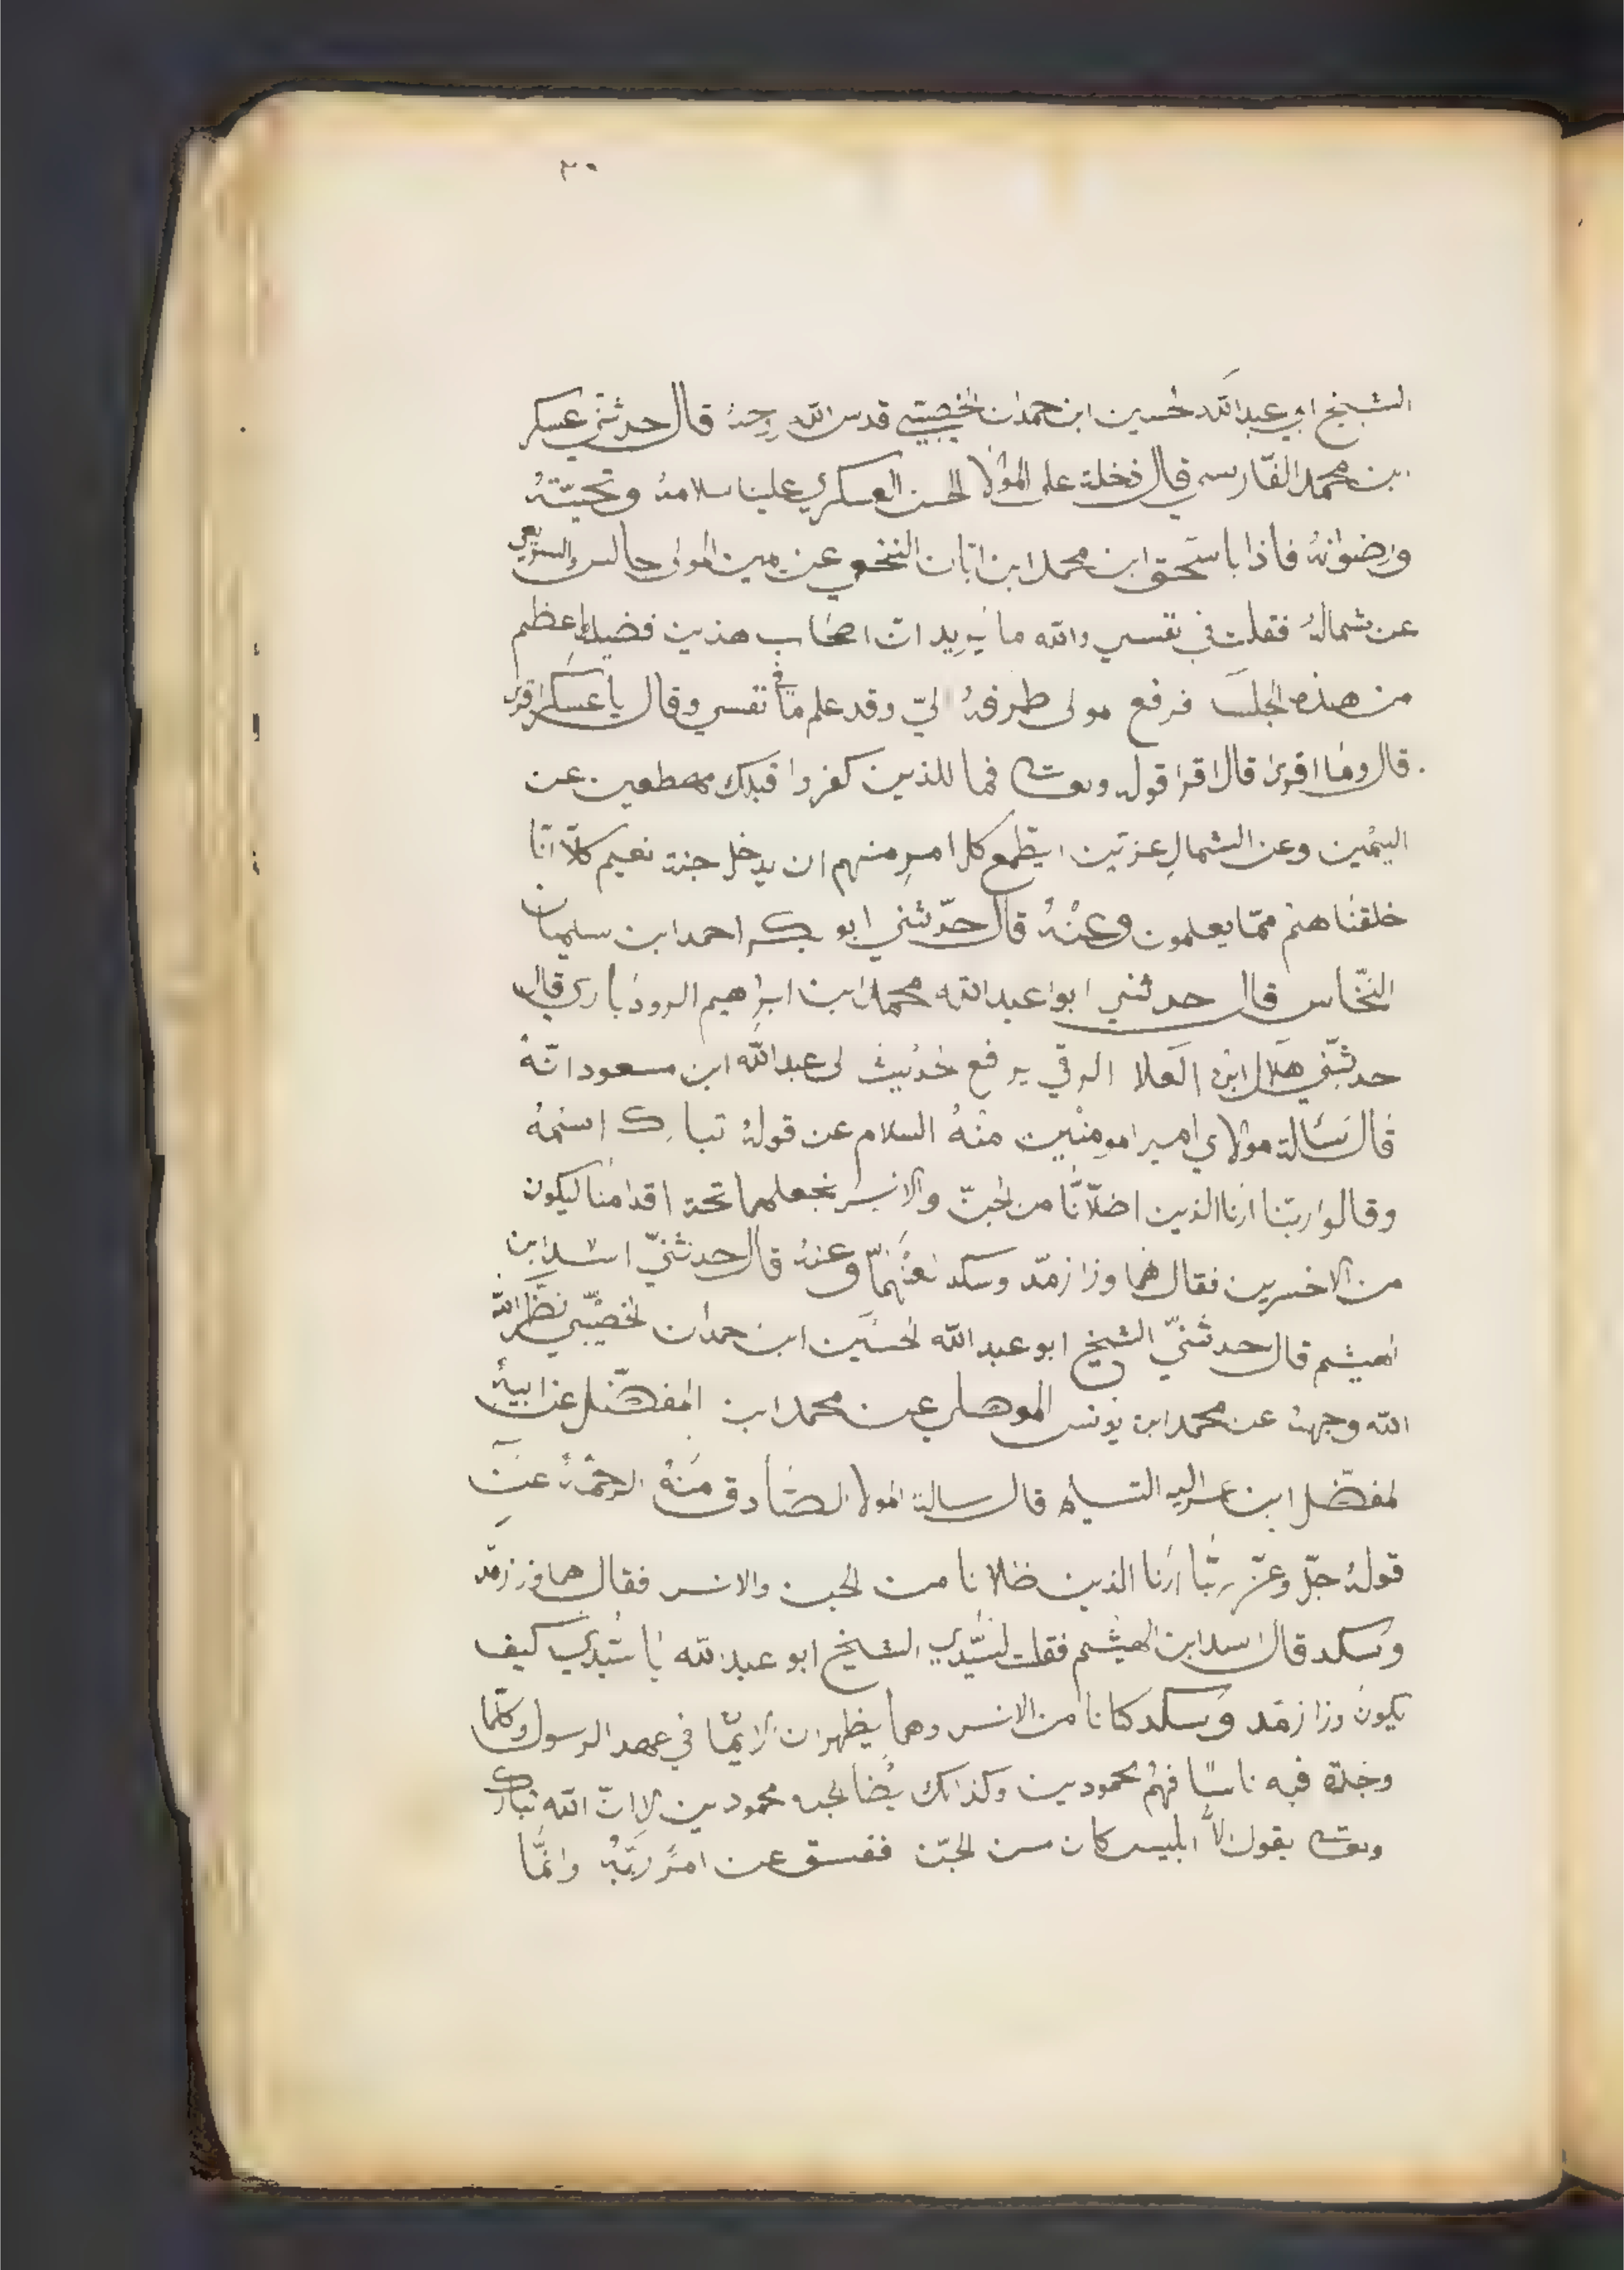 ٣٠
الشيخ ابي عبدالله لحسين ابن حمدان الخصيبي قدس الله روحه قال حدثني عسكر
بن محمد الفارسي قال دخلة على المولا الحسن العسكري علينا سلامهُ وتحيّتهُ
ورضوانهُ فاذا باسحق ابن محمد ابن ابّان النخعي عن يمين المولى جالس والشريعي
عن شمالهُ فقلت في نفسي والله ما يريد انّ اصحاب هذين فضيله اعظم
من هذه الجلسَ فرفع مولى طرفهُ اليّ وقد علم ما في نفسي وقال يا عسكر اقرى
قال وما اقرى قال اقرا قوله وتعالى فما للذين كفروا قبلك مهطعين عن
اليمين وعن الشمال عزتين ايطمع كل امرِ منهم ان يدخل جنة نعيم كلاّ انّا
خلقناهم ممّا يعلمون وعنهُ قال حدّثني ابو بكر احمد ابن سليمان
النخّاس قال حدثني ابوا عبدالله محمد ابن ابراهيم الرودباري قال
حدثّني هلال ابن العلا الرقي يرفع لحديث لى عبدالله ابن مسعود انّهُ
قال سَالة مولاي امير امومنين منهُ السلام عن قولهُ تبارك اسمهُ
وقالوا ربّنا ارنا الذين اضلاّنا من الجنّ والانس نجعلهما تحة اقدامنا ليكون
من الاخسرين فقال هما وزا زمّد وسكد لعنهما وعنهُ قال حدثنيّ اسد ابن
اهيثم قال حدثنيّ الشيخ ابو عبد الله لحسين ابن حمدان لخصيبّي نظّر الله
الله وجههُ عن محمد ابن يونس الموصلي عن محمد ابن المفضّل عن ابيهُ
لمفضّل ابن عمر اليه التسلم قال سالة المولا الصّادق منهُ الرحمةُ عن
قولهُ جلّ وعزّ ربّنا ارنا الذين ضللانا من لجن والانس فقال هما وزر زمّد
وسكد قال اسد ابن الهيثم فقلت لسيّدي الشيخ ابو عبدالله يا سيّدي كيف
يكون وزا زمّد وسكد كانا من الانس وهما يظهران الايمّا في عهد الرسول وكلّما
وجدة فيه ناسًا فهم محمودين وكذالك يضا لجنه محمودين لا انّ الله تبارك
وتعالى يقول الاّ ابليس كان من الجنّ ففسق عن امرُ ربّهِ وانّما